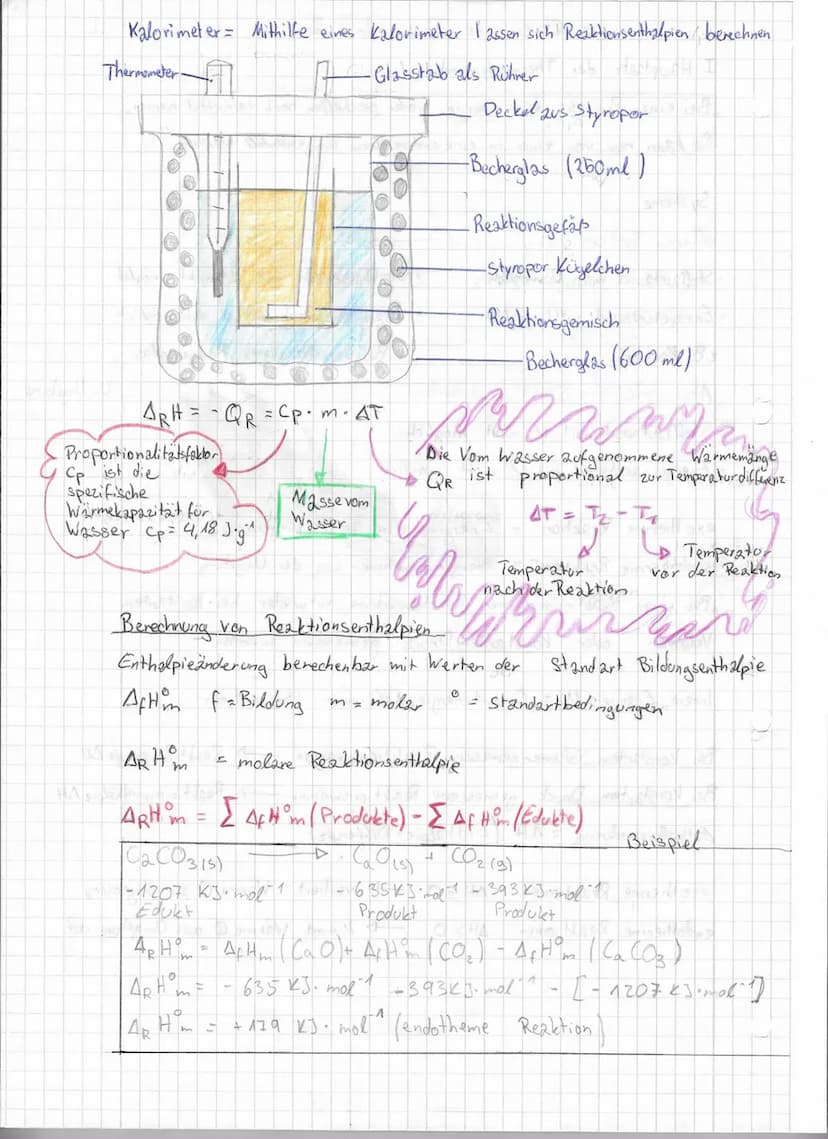 Kalorimeter = Mithilfe eines Kalorimeter lassen sich Reaktionsenthalpien berechnen
Thermometer
Glasstab als Rührer
Deckel aus Styropor
Becherglas (250ml)
Reaktionsgefäß
Styropor Kügelchen
Reaktionsgemisch
Becherglas (600 ml)
ΔRH = - QR = Cp · m · ΔT
Proportionalitätsfaktor
Cp ist die
spezifische
Wärmekapazität für
Wasser cp = 4,18 J·g⁻¹
Masse vom
Wasser
Die Vom Wasser aufgenommene Wärmemänge
QR ist proportional zur Temperaturdifferenz
ΔT = T2 - T1
Temperatur
nach der Reaktion
Temperator
vor der Reaktion
Berechnung von Reaktionsenthalpien
Enthalpieänderung berechenbar mit Werten der Standart Bildungsenthalpie
ΔfH°m f = Bildung m = molar ° = Standartbedingungen
ΔRH°m = molare Reaktionsenthalpie
ΔRH°m = ∑ ΔfH°m (Produkte) - ∑ ΔfH°m (Edukte)
Beispiel
CaCO3(s) → CaO(s) + CO2(g)
-1207 KJ·mol⁻¹ -635KJ·mol⁻¹ -393KJ·mol⁻¹
Edukt Produkt Produkt
ΔRH°m = ΔfHm (CaO) + ΔfH°m (CO2) - ΔfH°m (CaCO3)
ΔRH°m = - 635 KJ·mol⁻¹ -393KJ·mol⁻¹ - [-1207KJ·mol⁻¹]
ΔRH°m = +179 KJ·mol⁻¹ (endotheme Reaktion)